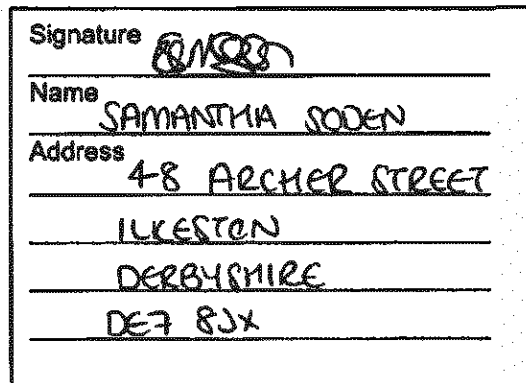 Signature
Name
SAMANTHA SODEN
Address
48 ARCHER STREET
ILKESTON
DERBYSHIRE
DE7 8JX